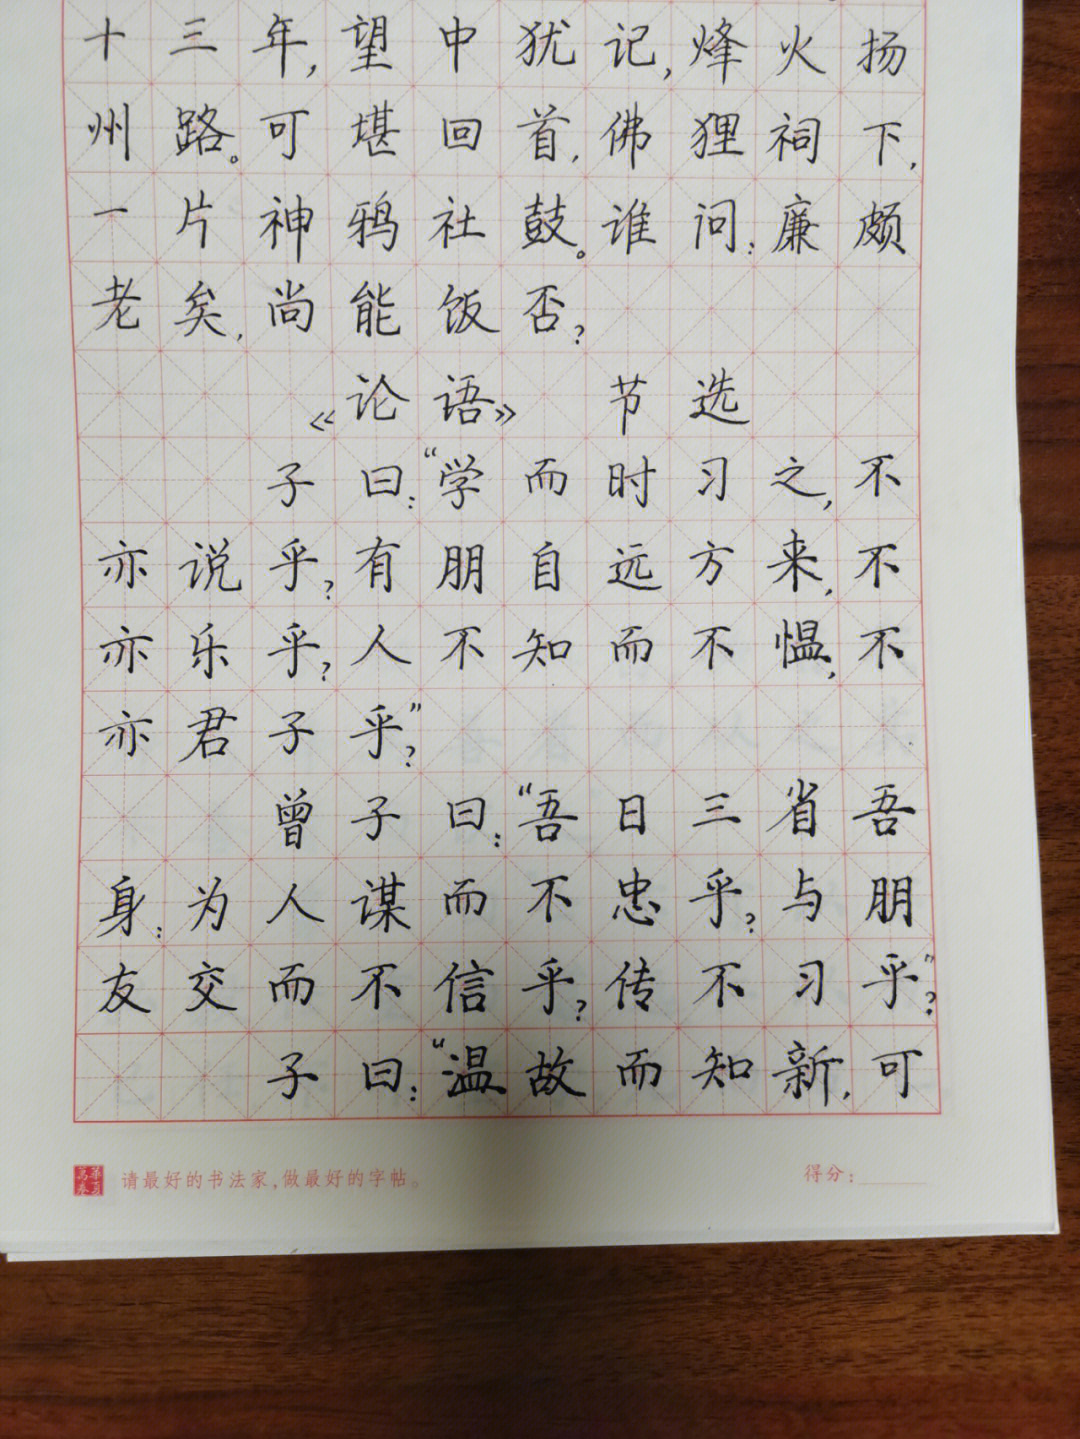 十三年,望中犹记,烽火扬
州路。可堪回首,佛狸祠下,
一片神鸦社鼓。谁问:廉颇
老矣,尚能饭否?
《论语》 节选
子曰:“学而时习之,不
亦说乎?有朋自远方来,不
亦乐乎?人不知而不愠,不
亦君子乎?”
曾子曰:“吾日三省吾
身:为人谋而不忠乎?与朋
友交而不信乎?传不习乎?”
子曰:“温故而知新,可
请最好的书法家,做最好的字帖。 得分: